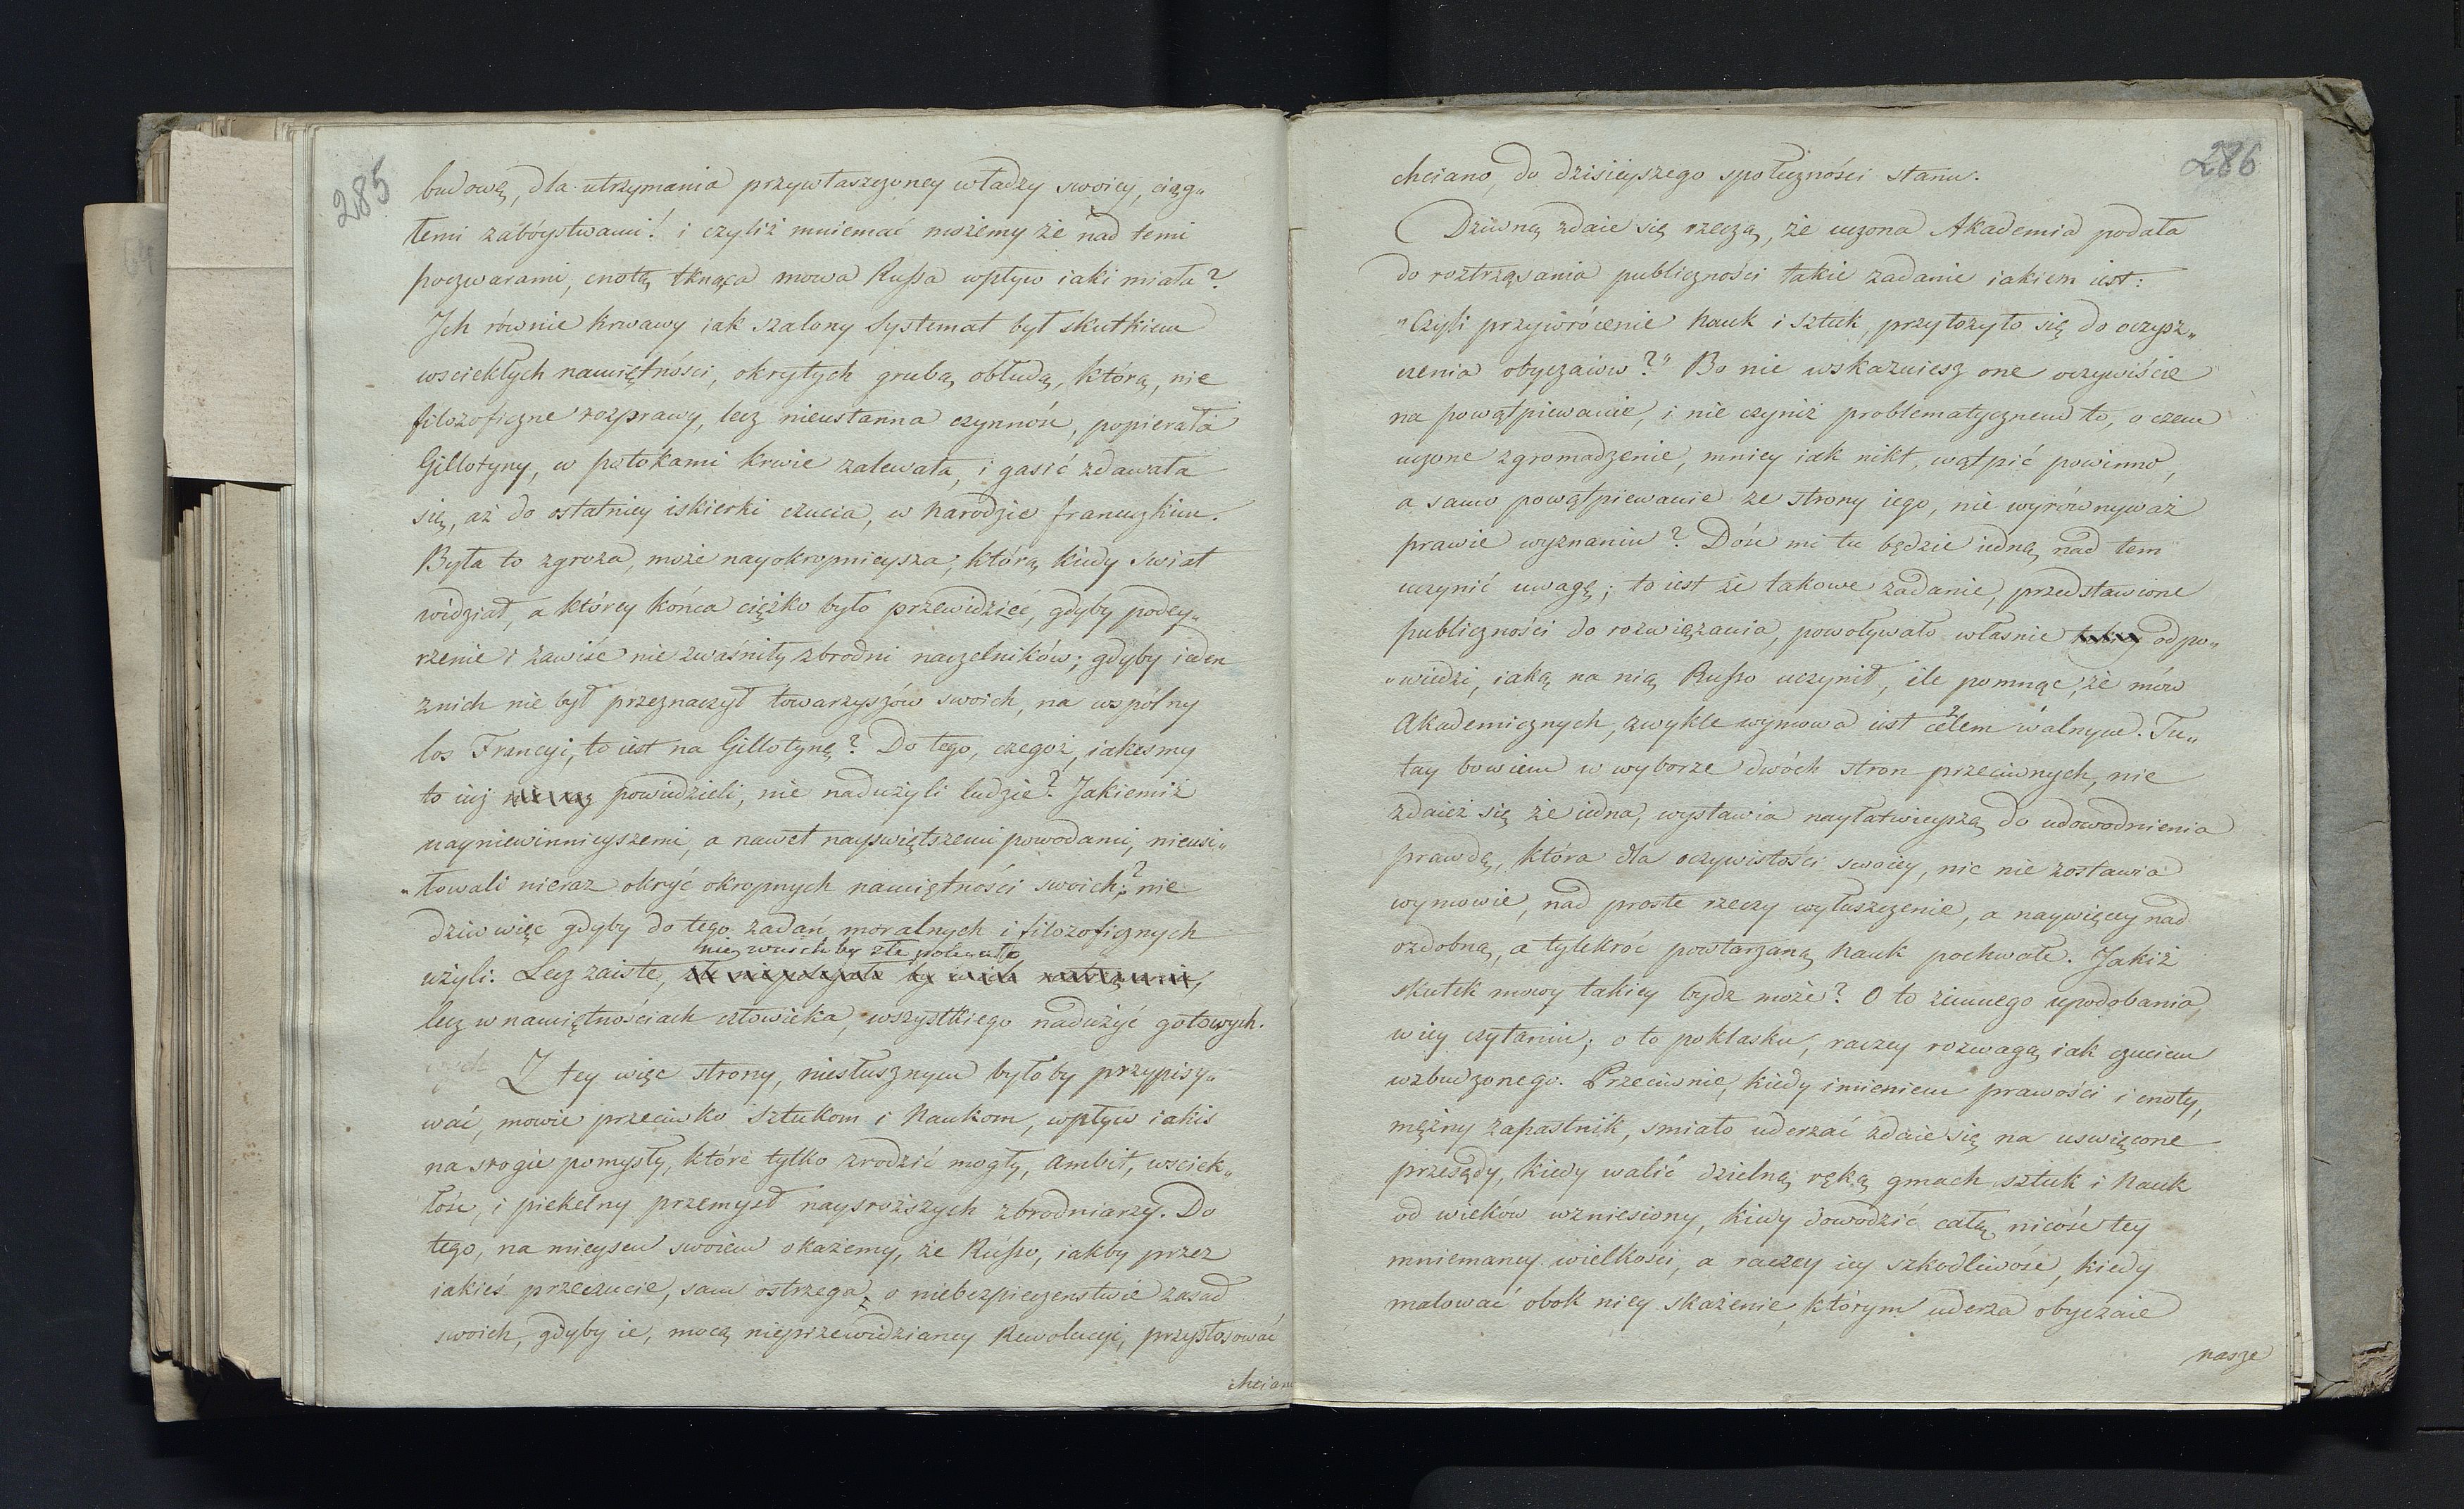 285
budową, dla utrzymania przywłaszczoney władzy swoiey, ciąg„
łemi zabóystwami! i czyliż mniemać możemy że nad temi
poczwarami, cnotą tknąca mowa Russa wpływ iaki miała?
Jch równie krwawy iak szalony Systemat był skutkiem
wsciekłych namiętności, okrytych grubą obłudą, którą, nie
filozoficzne rozprawy, lecz nieustanna czynność, popierała
Gillotyny, w potokami krwie zalewała, i gasić zdawała
się, aż do ostatniey iskierki czucia, w narodzie francuzkim.
Była to zgroza, może nayokropnieysza, którą kiedy swiat
widział, a którey końca ciężko było przewidzieć, gdyby podey„
rzenie i zawiść nie zwaśniły zbrodni naczelników; gdyby ieden
znich nie był przeznaczył towarzyszów swoich, na wspólny
los Francyi, to iest na Gillotynę? Do tego, czegoż, iakesmy
to iuż nie raz powiedzieli, nie nadużyli ludzie? Jakiemiż
nayniewinnieyszemi, a nawet nayswiętszemi powodami, nieusi„
„łowali nieraz okryć okropnych namiętności swoich?; nie
dziw więc gdyby do tego zadań moralnych i filozoficznych
nie, wnich by złe polegało
użyli. Lecz zaiste,
lecz w namiętnościach człowieka, wszystkiego nadużyć gotowych.
Z tey więc strony, niesłusznym byłoby przypisy„
wać, mowie przeciwko Sztukom i Naukom, wpływ iakis
na srogie pomysły, które tylko zrodzić mogły, ambit, wsciek„
łość, i piekelny przemysł naysroższych zbrodniarzy. Do
tego, na mieyscu swoiem okażemy, że Russo, iakby przez
iakieś przeczucie, sam ostrzega, o niebezpieczenstwie zasad
swoich, gdyby ie, mocą nieprzewidzianey Rewolucyi, przystosować
chciano
286
chciano, do dzisieyszego społeczności stanu.
Dziwną zdaie się rzeczą, że uczona Akademia podała
do roztrząsania publiczności takie zadanie iakiem iest:
„Czyli przywrócenie Nauk i Sztuk, przyłożyło się do oczysz„
czenia obyczaiów?" Bo nie wskazuiesz one oczywiście
na powątpiewanie, i nie czyniż problematycznem to, o czem
uczone zgromadzenie, mniey iak nikt, wątpić powinno,
a samo powątpiewanie ze strony iego, nie wyrównyważ
prawie wyznaniu? Dość mi tu będzie iedną nad tem
uczynić uwagę; to iest że takowe zadanie, przedstawione
publiczności do rozwiązania, powoływało własnie takiey odpo„
„wiedzi, iaką na nią Russo uczynił, ile pomnąc, że mów
Akademicznych, zwykle wymowa iest celem walnym. Tu„
tay bowiem w wyborze dwóch stron przeciwnych, nie
zdaież się że iedna, wystawia nayłatwieyszą do udowodnienia
prawdę, która dla oczywistości swoiey, nic nie zostawia
wymowie, nad proste rzeczy wyłuszczenie, a naywięcey nad
ozdobną, a tylekroć powtarzaną Nauk pochwałę. Jakiż
skutek mowy takiey bydz może? O to zimnego upodobania,
w iey czytaniu; o to poklasku, raczey rozwagą iak czuciem
wzbudzonego. Przeciwnie, kiedy imieniem prawości i cnoty,
mężny zapastnik, smiało uderzać zdaie się na uswięcone
przesądy, kiedy walić dzielną ręką gmach sztuk i Nauk
od wieków wzniesiony, kiedy dowodzić całą nicość tey
mniemaney wielkości, a raczey iey szkodliwość, kiedy
malować obok niey skażenie, którym uderza obyczaie
nasze